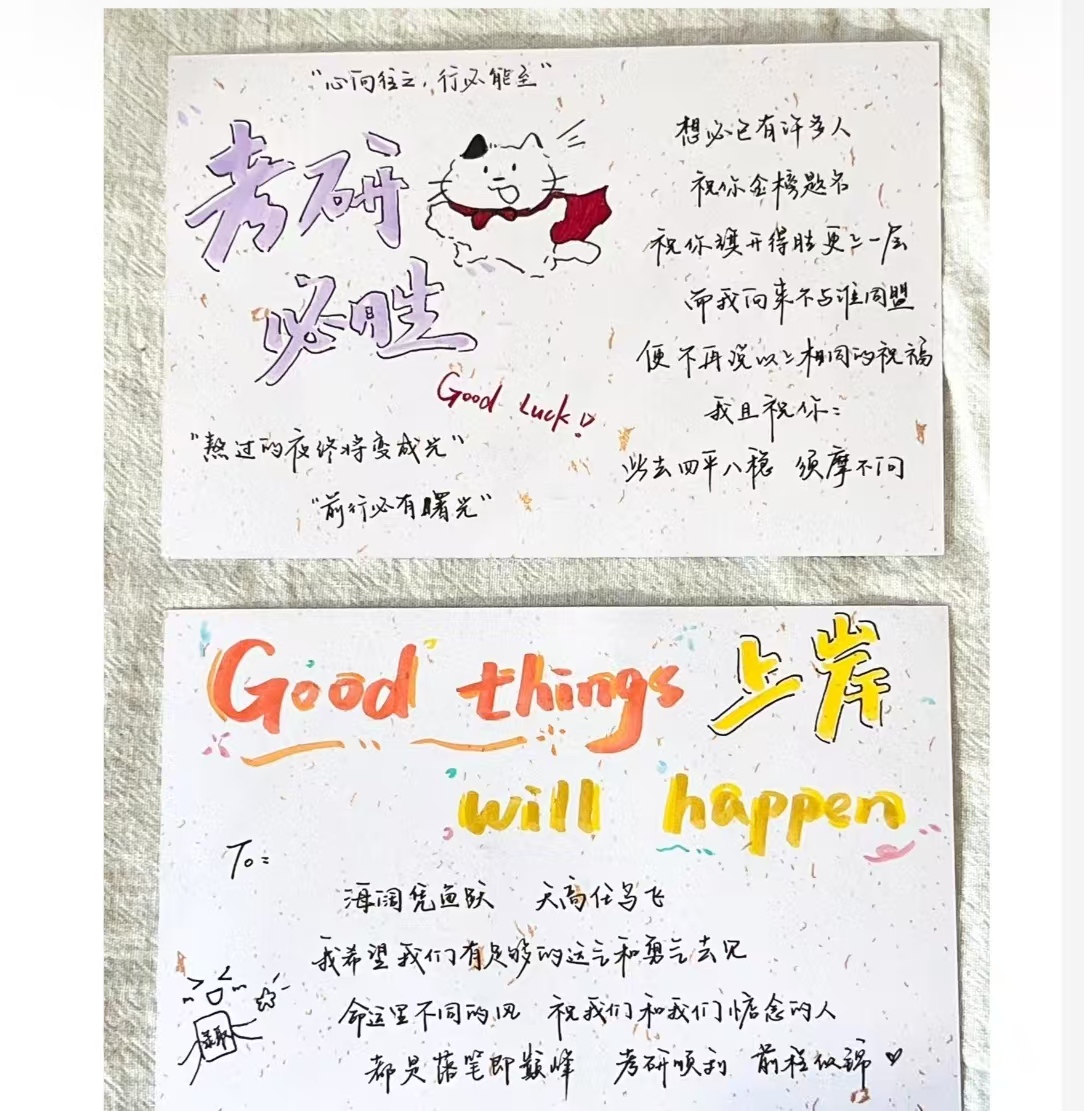 "心向往之,行必能至"
考研
必胜
Good Luck!
"熬过的夜终将变成光"
"前行必有曙光"
想必已有许多人
祝你金榜题名
祝你旗开得胜更上一层
而我向来不与谁同盟
便不再说以上相同的祝福
我且祝你:
此去四平八稳 须摩不问
Good things 上岸
will happen
To:
海阔凭鱼跃 天高任鸟飞
我希望我们有足够的运气和勇气去见
命运里不同的风 祝我们和我们惦念的人
都是落笔即巅峰 考研顺利 前程似锦♡
录取